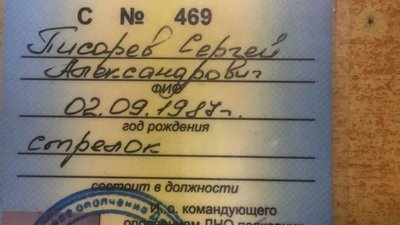 С № 469
Писарев Сергей
Александрович
ФИО
02.09.1987г.
год рождения
стрелок
состоит в должности
И. о. командующего
ополчением ДНО полковник
ное ополчение